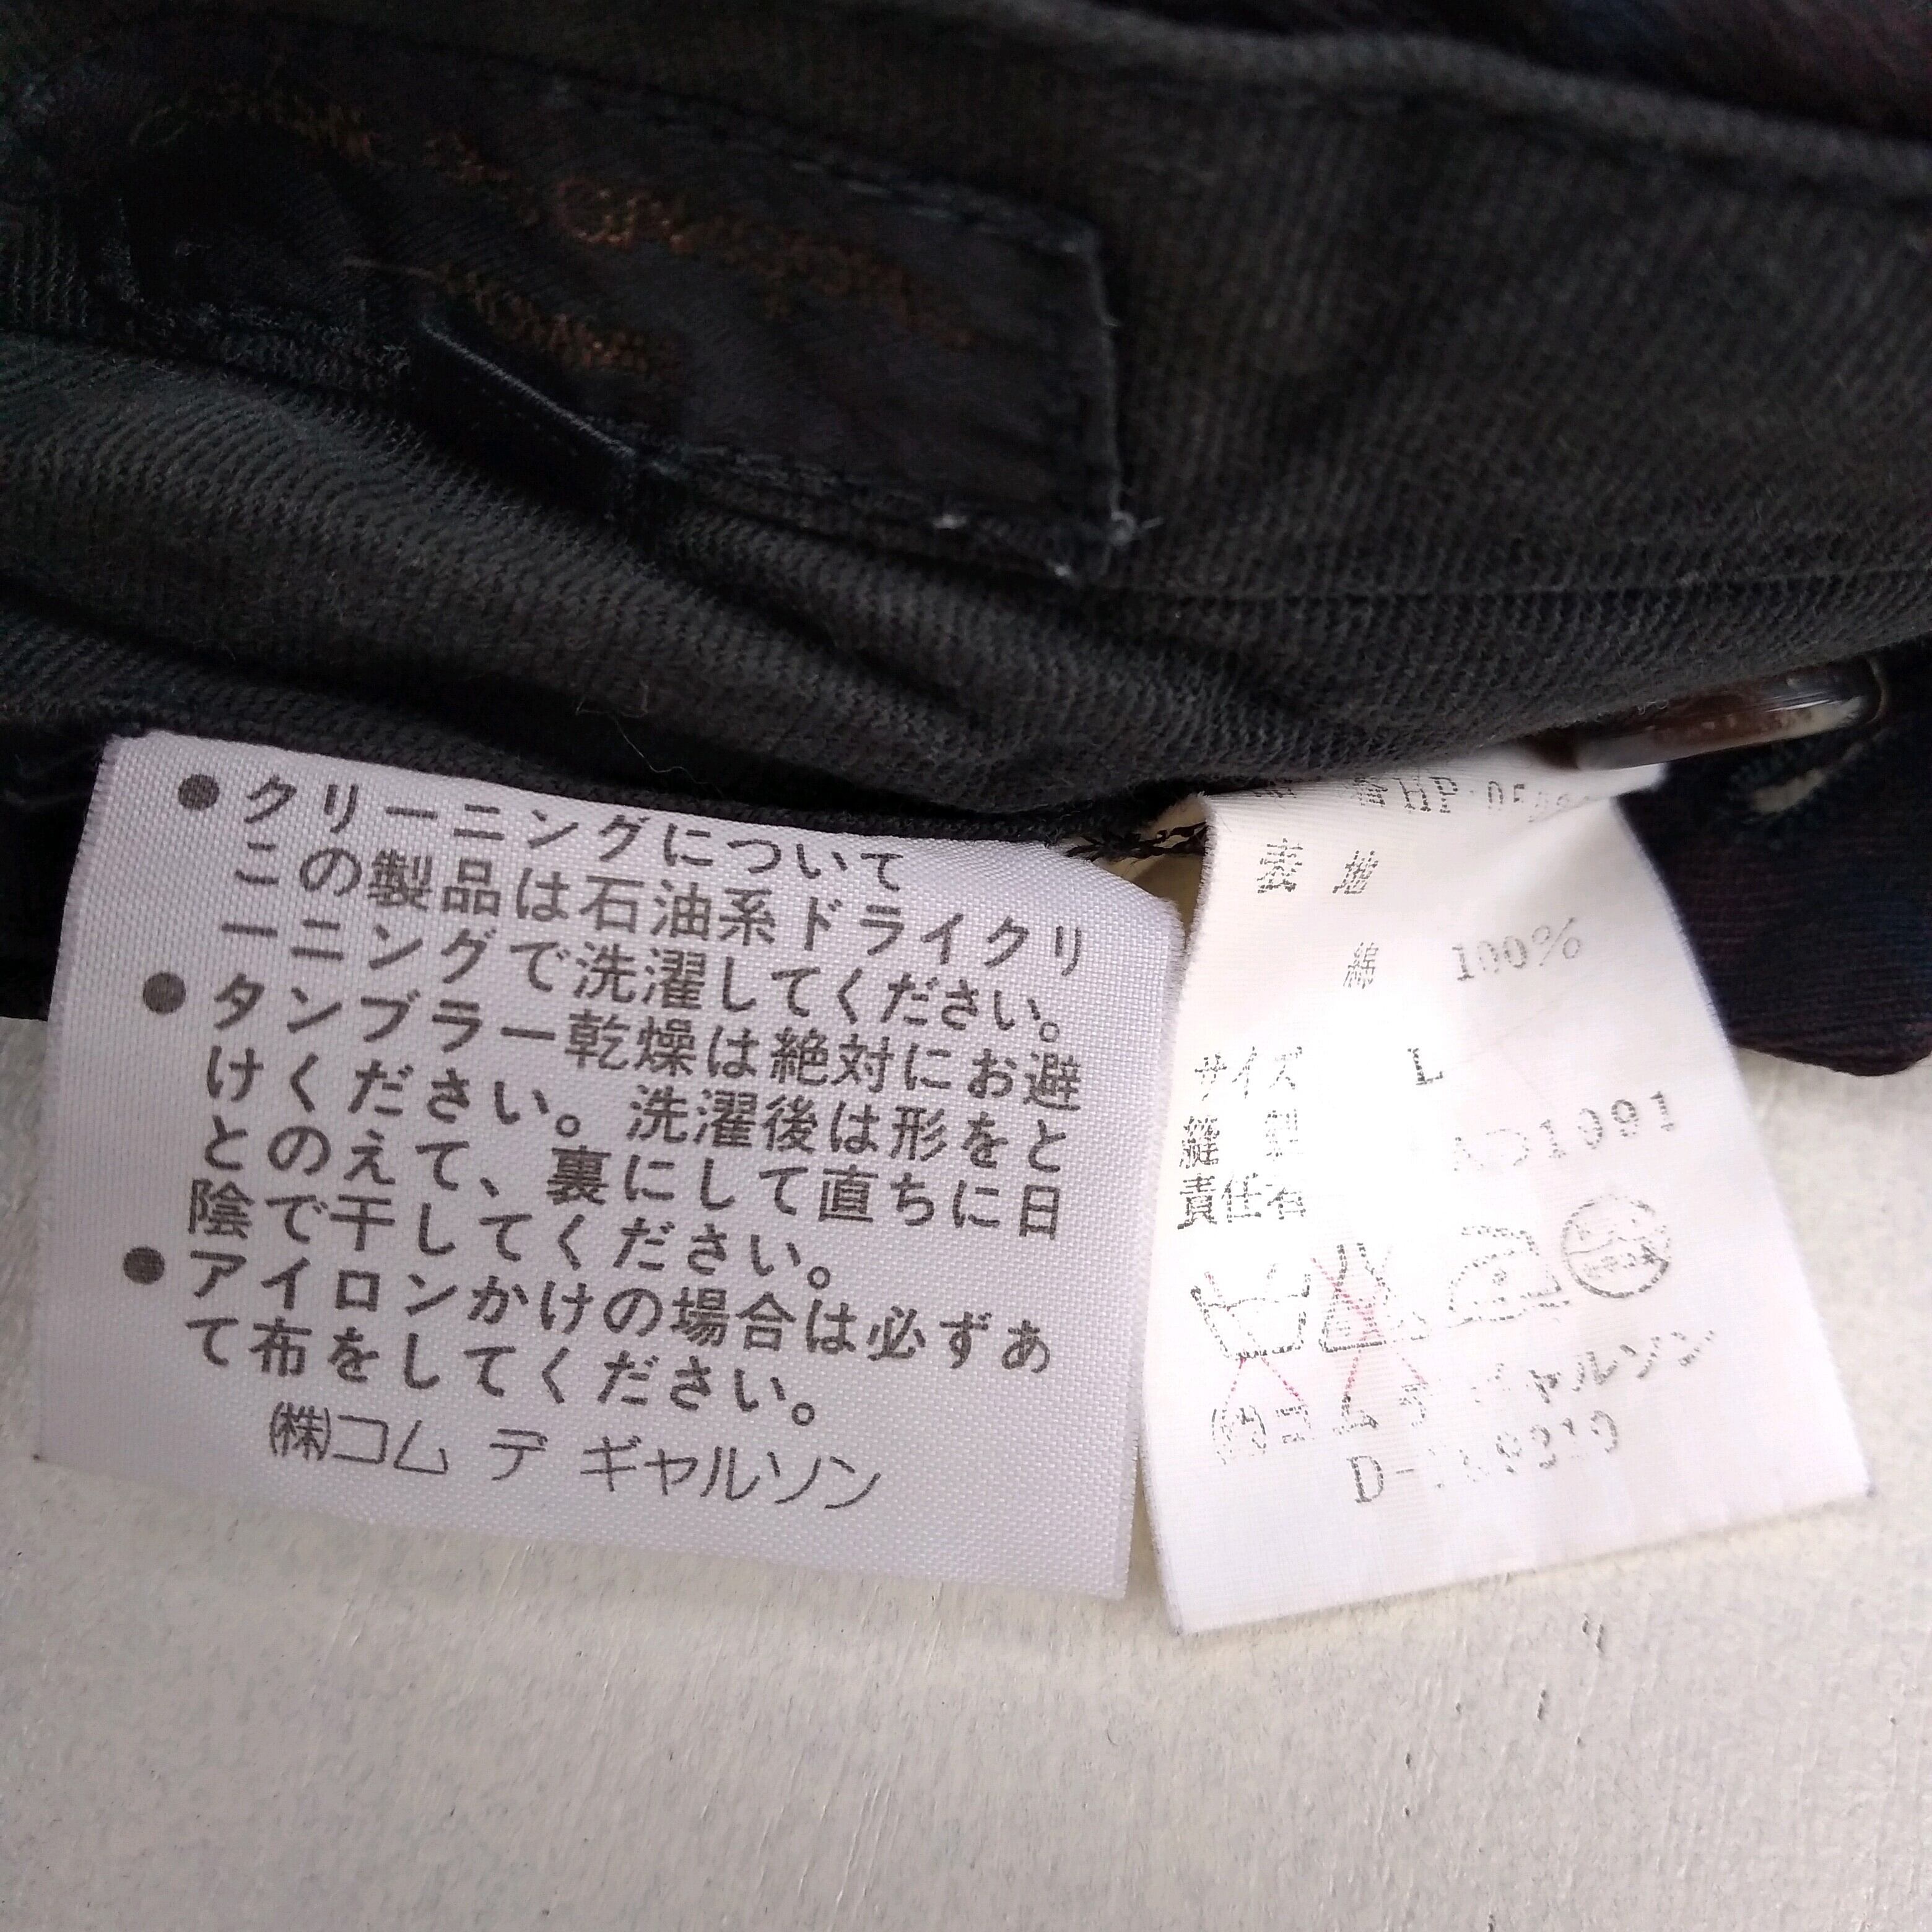 ●クリーニングについて
この製品は石油系ドライクリ
ーニングで洗濯してください。
●タンブラー乾燥は絶対にお避
けください。洗濯後は形をと
とのえて、裏にして直ちに日
陰で干してください。
●アイロンかけの場合は必ずあ
て布をしてください。
㈱コム デ ギャルソン
表 地
綿 100%
サイズ L
縫 製 AD1991
責任者
ギャルソン